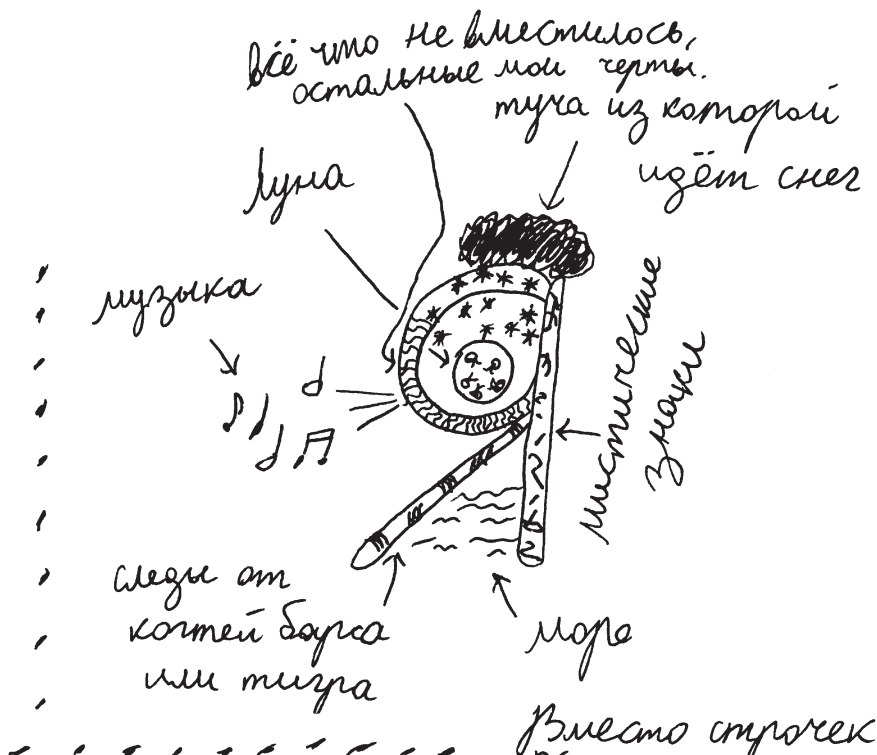 всё что не вместилось,
остальные мои черты.
туча из которой
идёт снег
Луна
музыка
мистические
знаки
следы от
когтей барса
или тигра
море
Вместо строчек